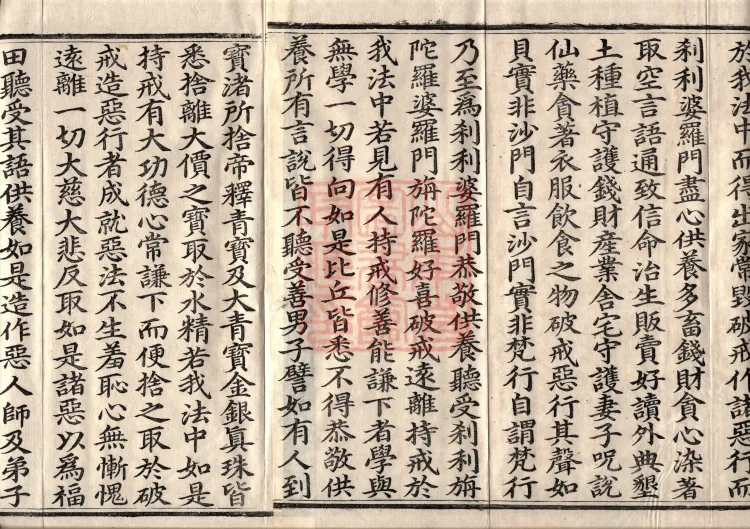 於我法中而得出家當毀破戒作諸惡行而
剎利婆羅門盡心供養多畜錢財貪心染著
取空言語通致信命治生販賣好讀外典墾
土種植守護錢財產業舍宅守護妻子呪說
仙藥貪著衣服飲食之物破戒惡行其聲如
貝實非沙門自言沙門實非梵行自謂梵行
乃至為剎利婆羅門恭敬供養聽受剎利旃
陀羅婆羅門旃陀羅好喜破戒遠離持戒於
我法中若見有人持戒修善能謙下者學與
無學一切得向如是比丘皆悉不得恭敬供
養所有言說皆不聽受善男子譬如有人到
寶渚所捨帝釋青寶及大青寶金銀真珠皆
悉捨離大價之寶取於水精若我法中如是
持戒有大功德心常謙下而便捨之取於破
戒造惡行者成就惡法不生羞恥心無慚愧
遠離一切大慈大悲反取如是諸惡以為福
田聽受其語供養如是造作惡人師及弟子